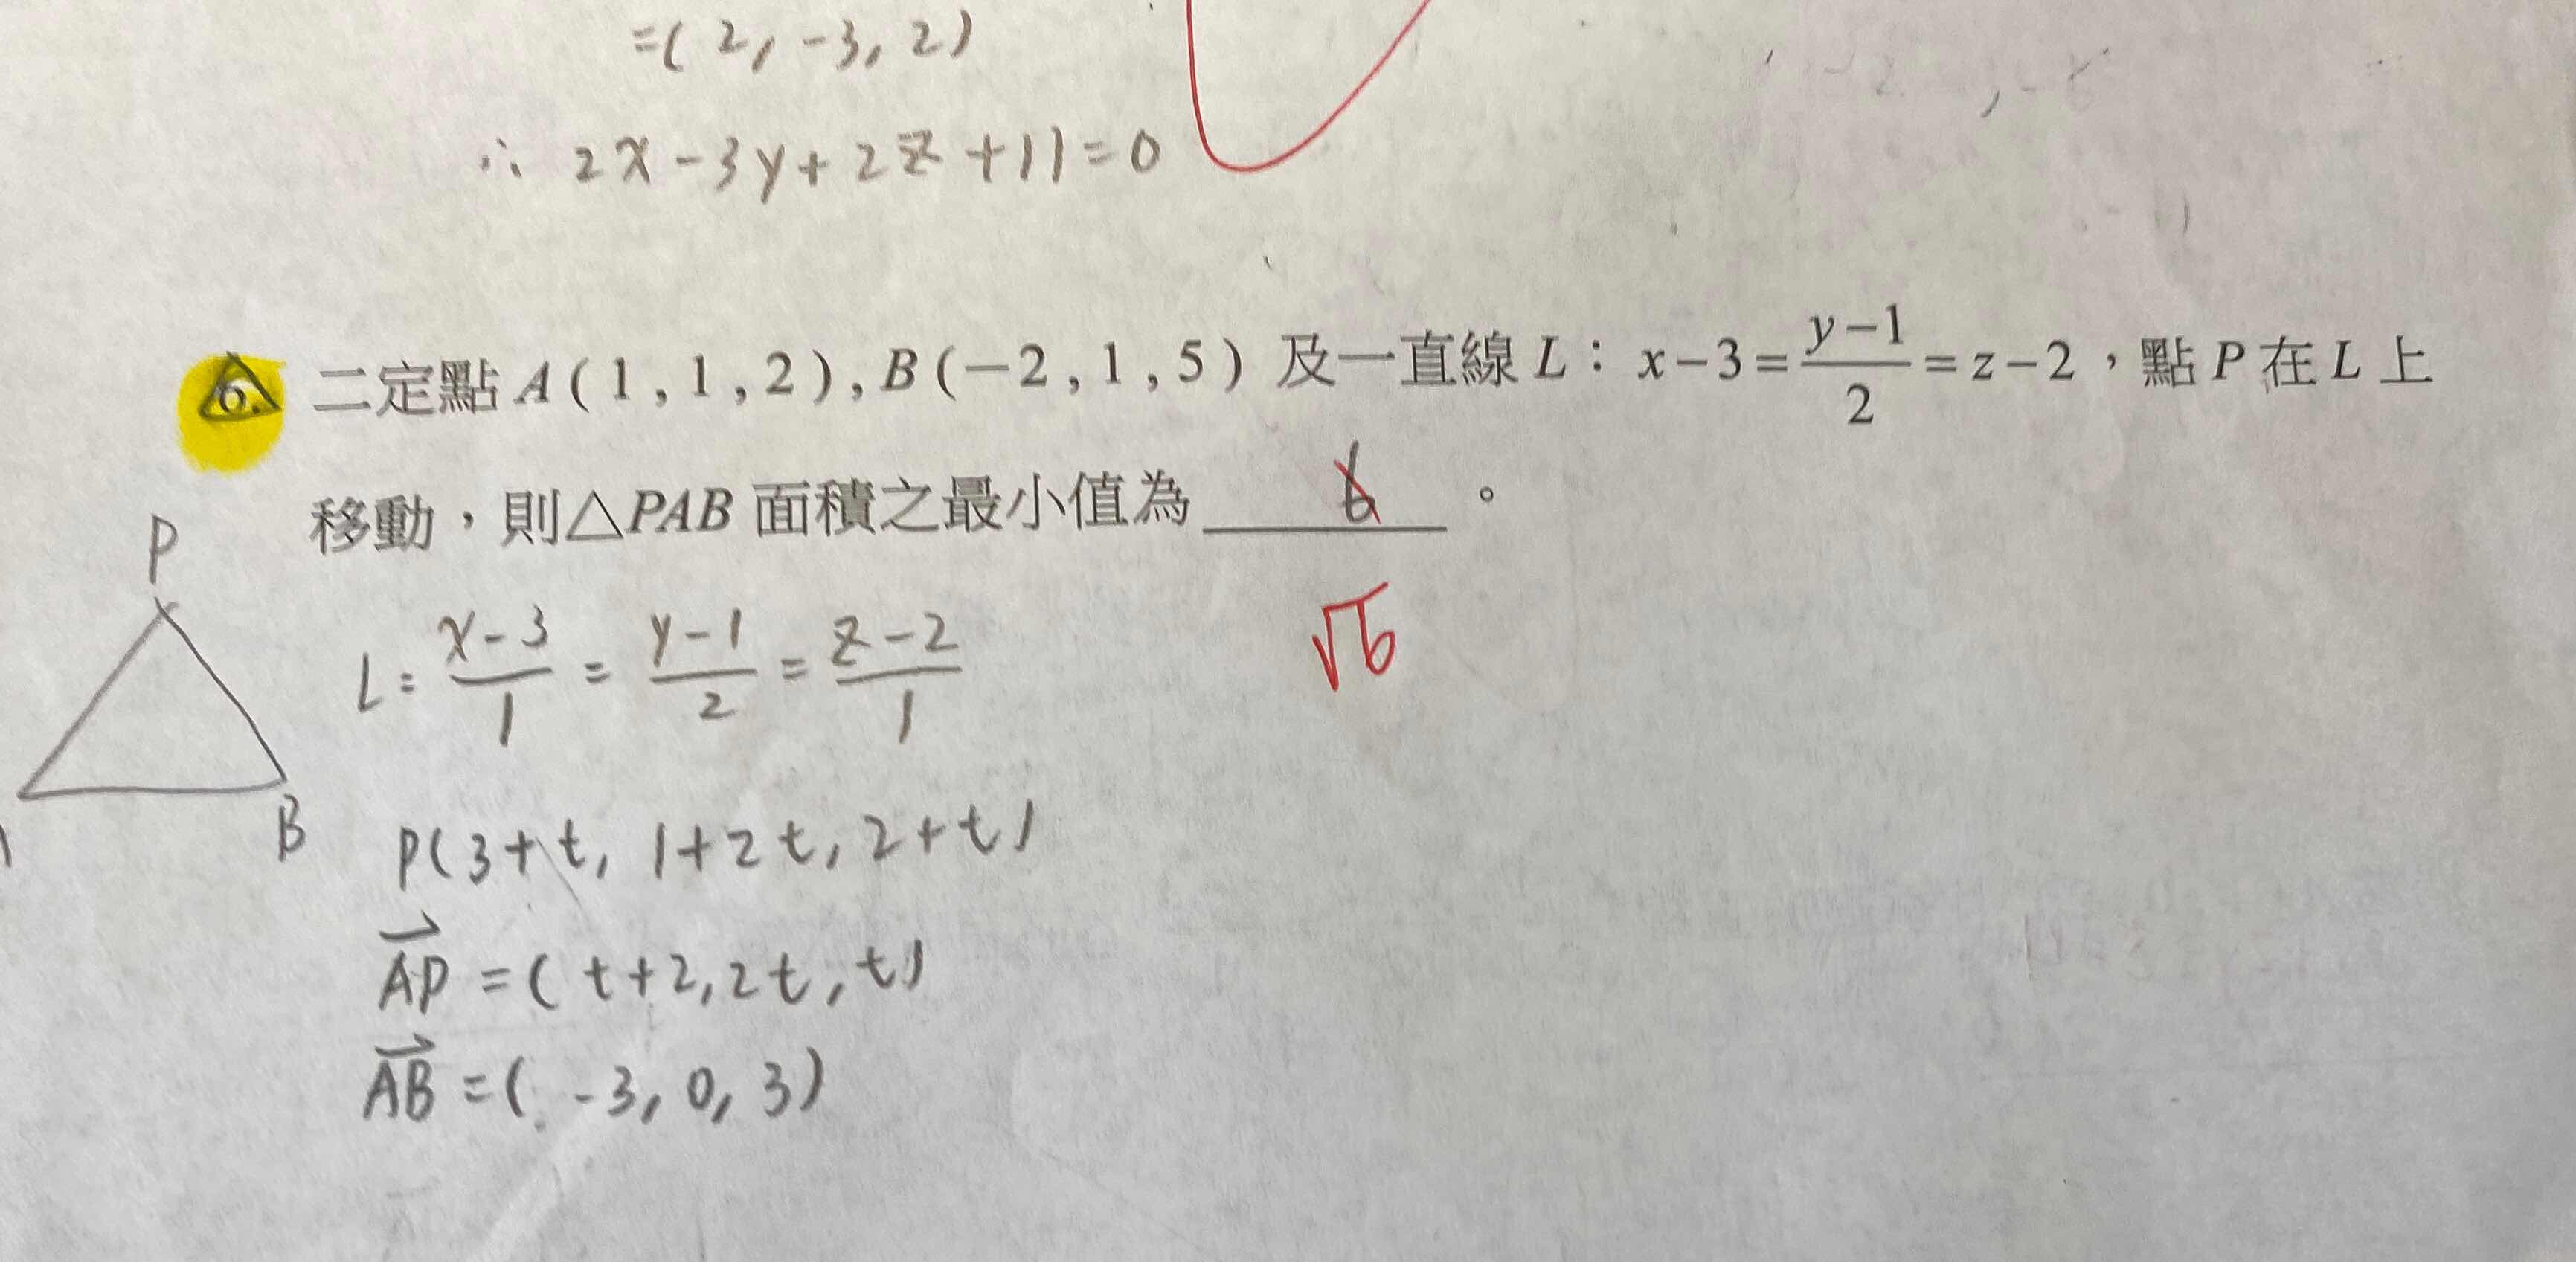 =( 2, -3, 2)
∴ 2x-3y+2z+11=0
6. 二定點 A(1,1,2),B(-2,1,5) 及一直線 L：x-3=\frac{y-1}{2}=z-2，點 P 在 L 上
移動，則△PAB 面積之最小值為 6 。
√6
P
B
L: \frac{x-3}{1} = \frac{y-1}{2} = \frac{z-2}{1}
P(3+t, 1+2t, 2+t)
\overrightarrow{AP} = (t+2, 2t, t)
\overrightarrow{AB} = (-3, 0, 3)